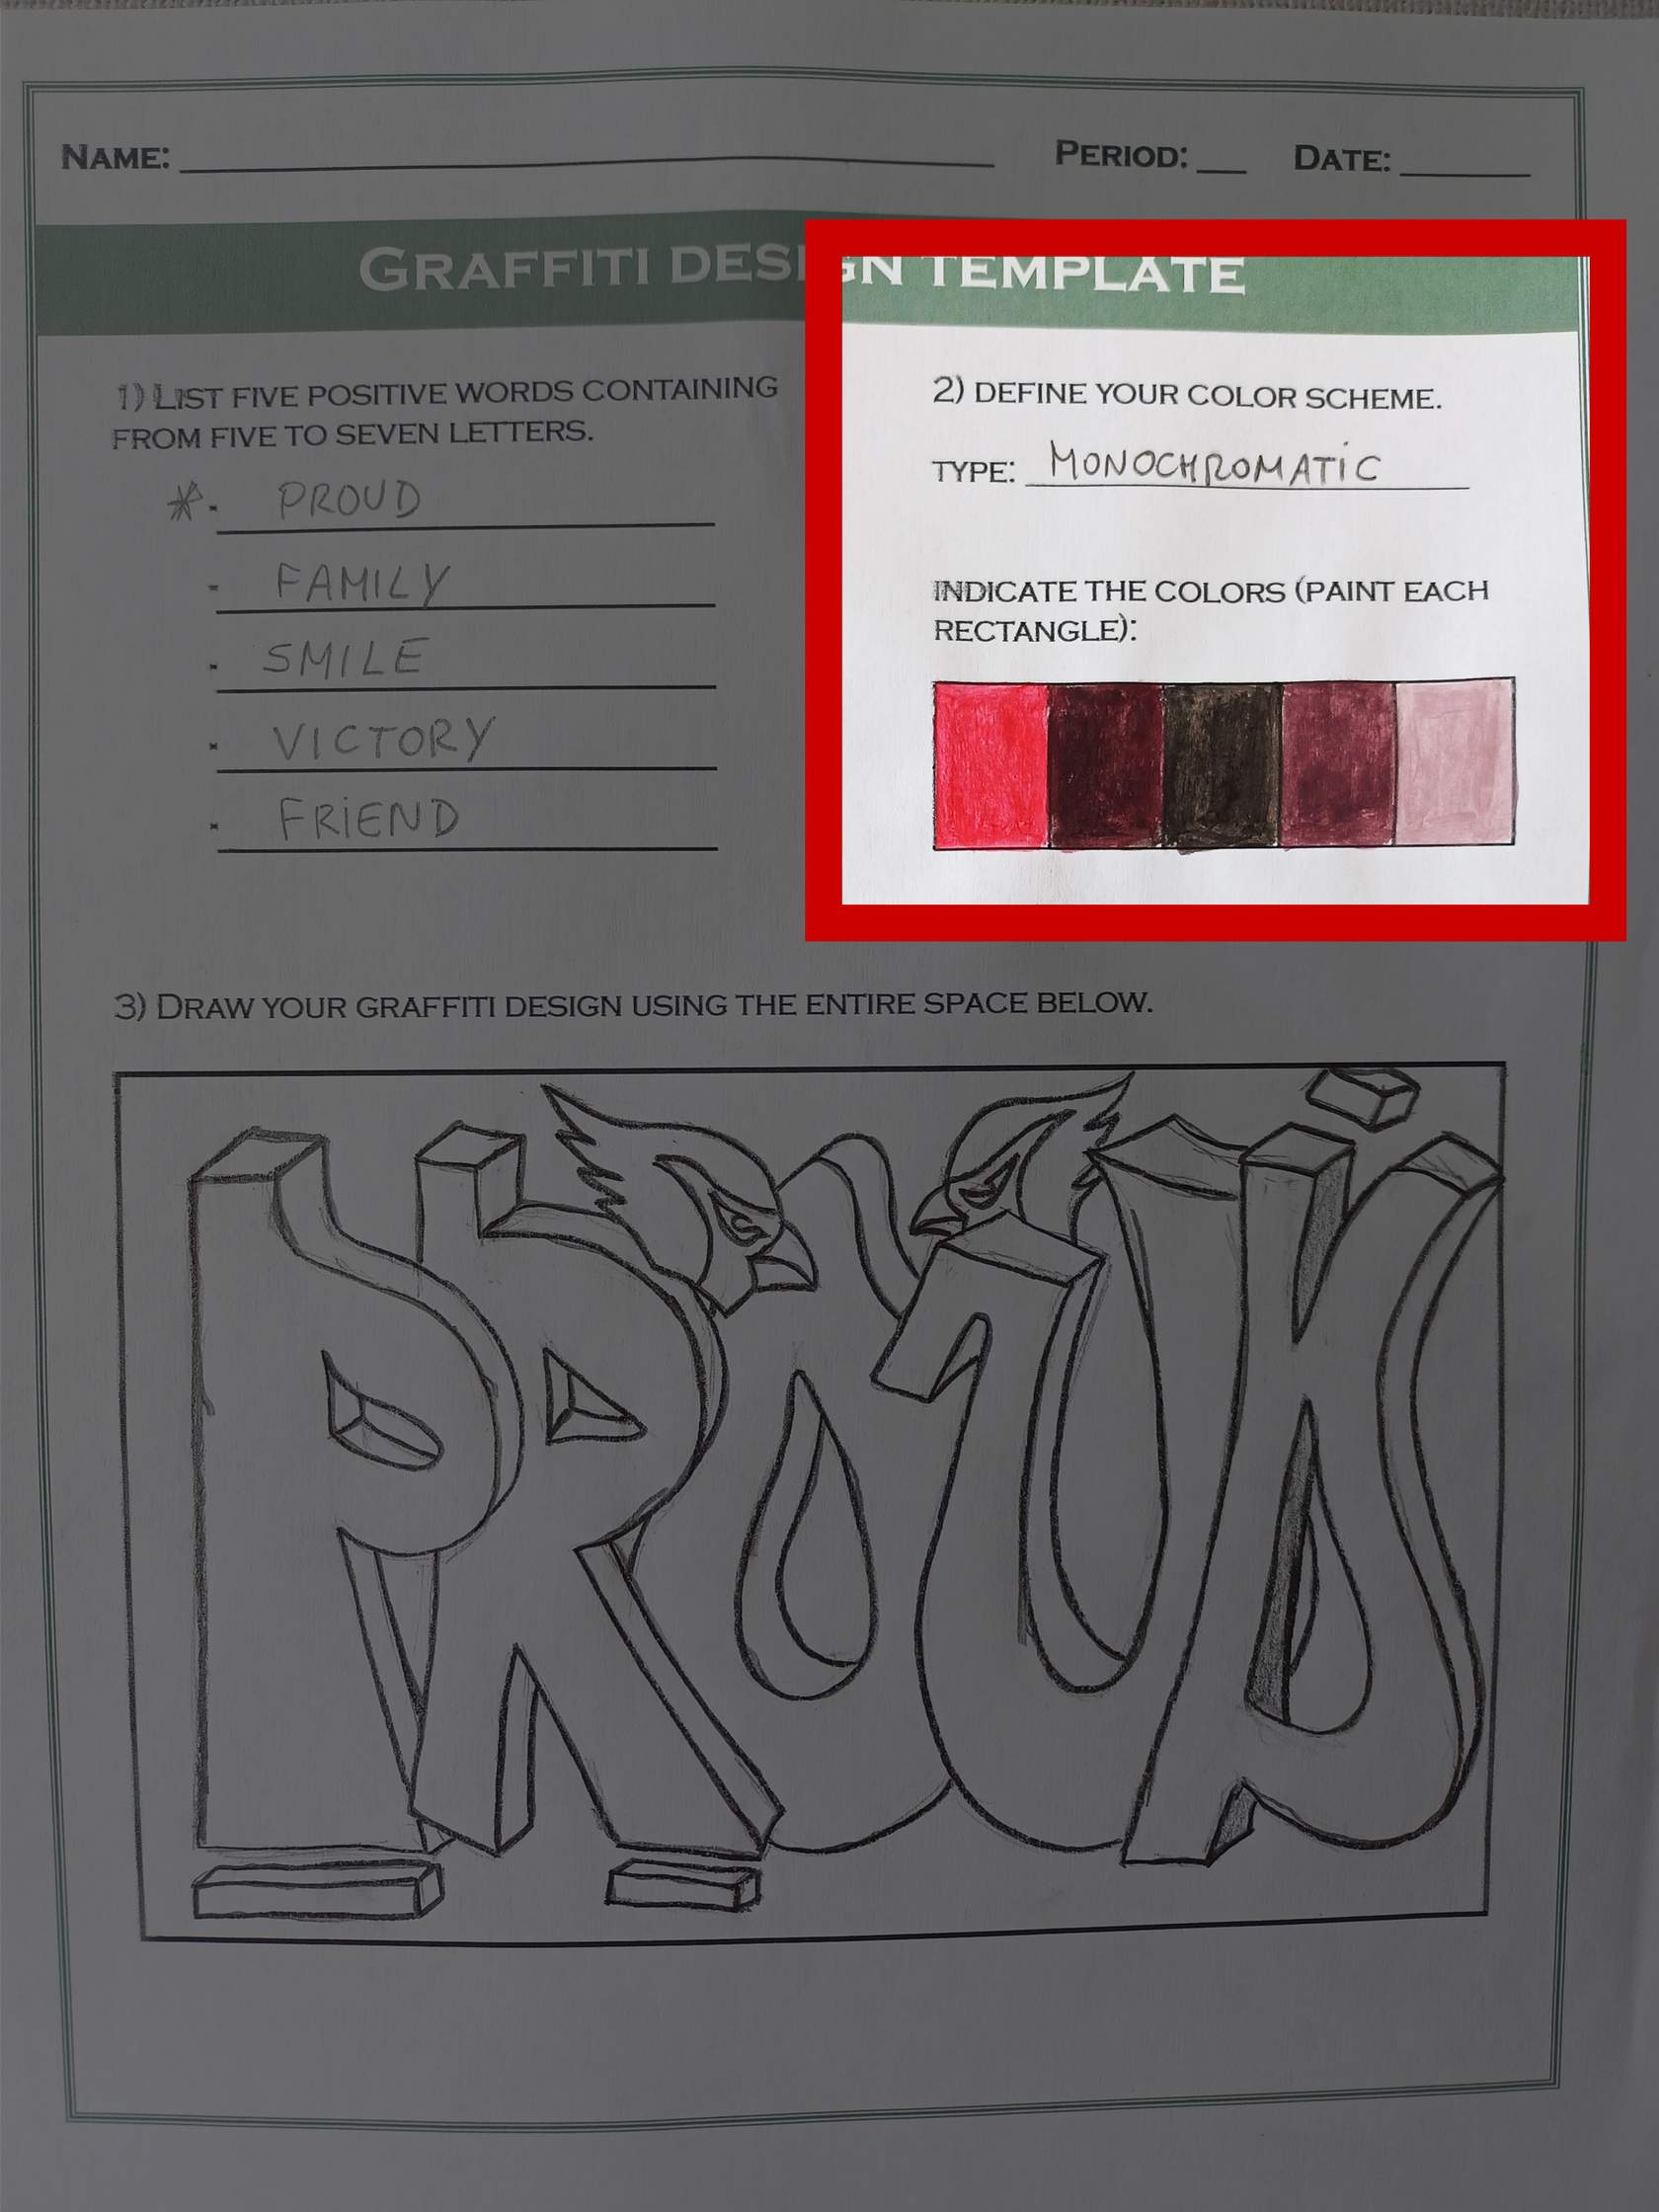 NAME: PERIOD: DATE:
GRAFFITI DESIGN TEMPLATE
1) LIST FIVE POSITIVE WORDS CONTAINING
FROM FIVE TO SEVEN LETTERS.
* PROUD
- FAMILY
- SMILE
- VICTORY
- FRIEND
2) DEFINE YOUR COLOR SCHEME.
TYPE: MONOCHROMATIC
INDICATE THE COLORS (PAINT EACH
RECTANGLE):
3) DRAW YOUR GRAFFITI DESIGN USING THE ENTIRE SPACE BELOW.
PROUD